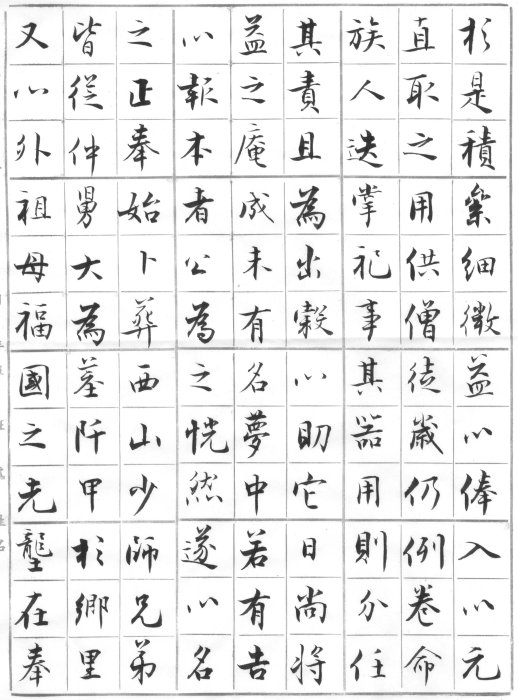 於是積絫細微益以俸入以元
直取之用供僧徒歲仍例卷命
族人迭掌祀事其器用則分任
其責且為出穀以助它日尚將
益之庵成未有名夢中若有告
以報本者公為之恍然遂以名
之正奉始卜葬西山少師兄弟
皆從仲舅大為墓阡甲於鄉里
又以外祖母福國之先壟在奉